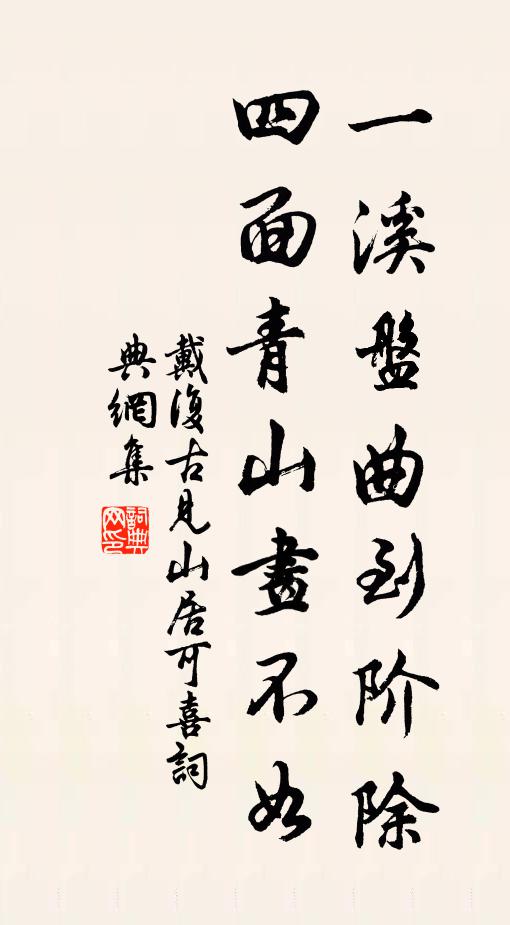 一溪盤曲到阶除
四面青山畫不如
戴復古見山居可喜詞
典網集
詞典網印